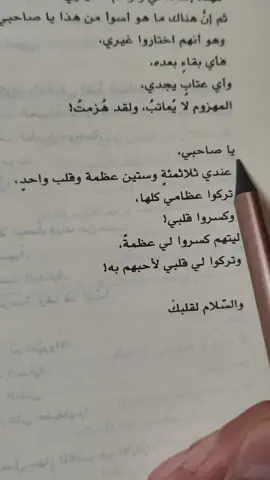 ثم إنَّ هناك ما هو أسوأ من هذا يا صاحبي
وهو أنهم اختاروا غيري،
فأي بقاءٍ بعده،
وأي عتابٍ يجدي،
المهزوم لا يُعاتبُ، ولقد هُزمتُ!
يا صاحبي،
عندي ثلاثمئةٍ وستين عظمة وقلب واحدٍ،
تركوا عظامي كلها،
وكسروا قلبي!
ليتهم كسروا لي عظمةً،
وتركوا لي قلبي لأحبهم به!
والسّلام لقلبكَ